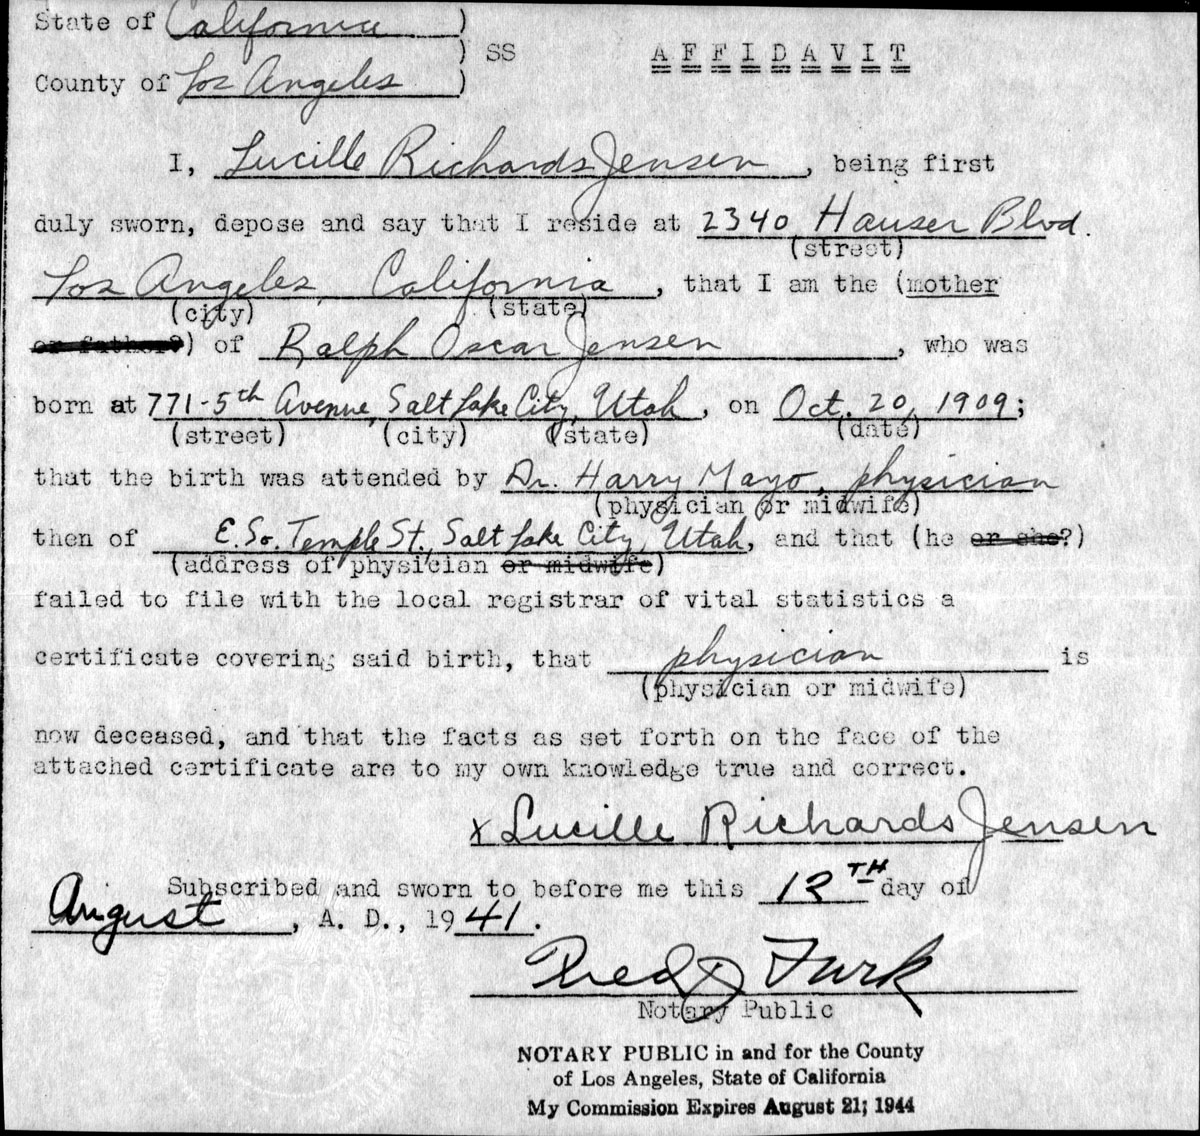 State of California )
) SS AFFIDAVIT
County of Los Angeles )
I, Lucille Richards Jensen, being first
duly sworn, depose and say that I reside at 2340 Hauser Blvd.
(street)
Los Angeles, California, that I am the (mother
(city) (state)
or father?) of Ralph Oscar Jensen, who was
born at 771-5th Avenue, Salt Lake City, Utah, on Oct. 20, 1909;
(street) (city) (state) (date)
that the birth was attended by Dr. Harry Mayo, physician
(physician or midwife)
then of E. So. Temple St., Salt Lake City, Utah, and that (he or she?)
(address of physician or midwife)
failed to file with the local registrar of vital statistics a
certificate covering said birth, that physician is
(physician or midwife)
now deceased, and that the facts as set forth on the face of the
attached certificate are to my own knowledge true and correct.
x Lucille Richards Jensen
Subscribed and sworn to before me this 12TH day of
August, A. D., 1941.
Fred J Turk
Notary Public
NOTARY PUBLIC in and for the County
of Los Angeles, State of California
My Commission Expires August 21; 1944